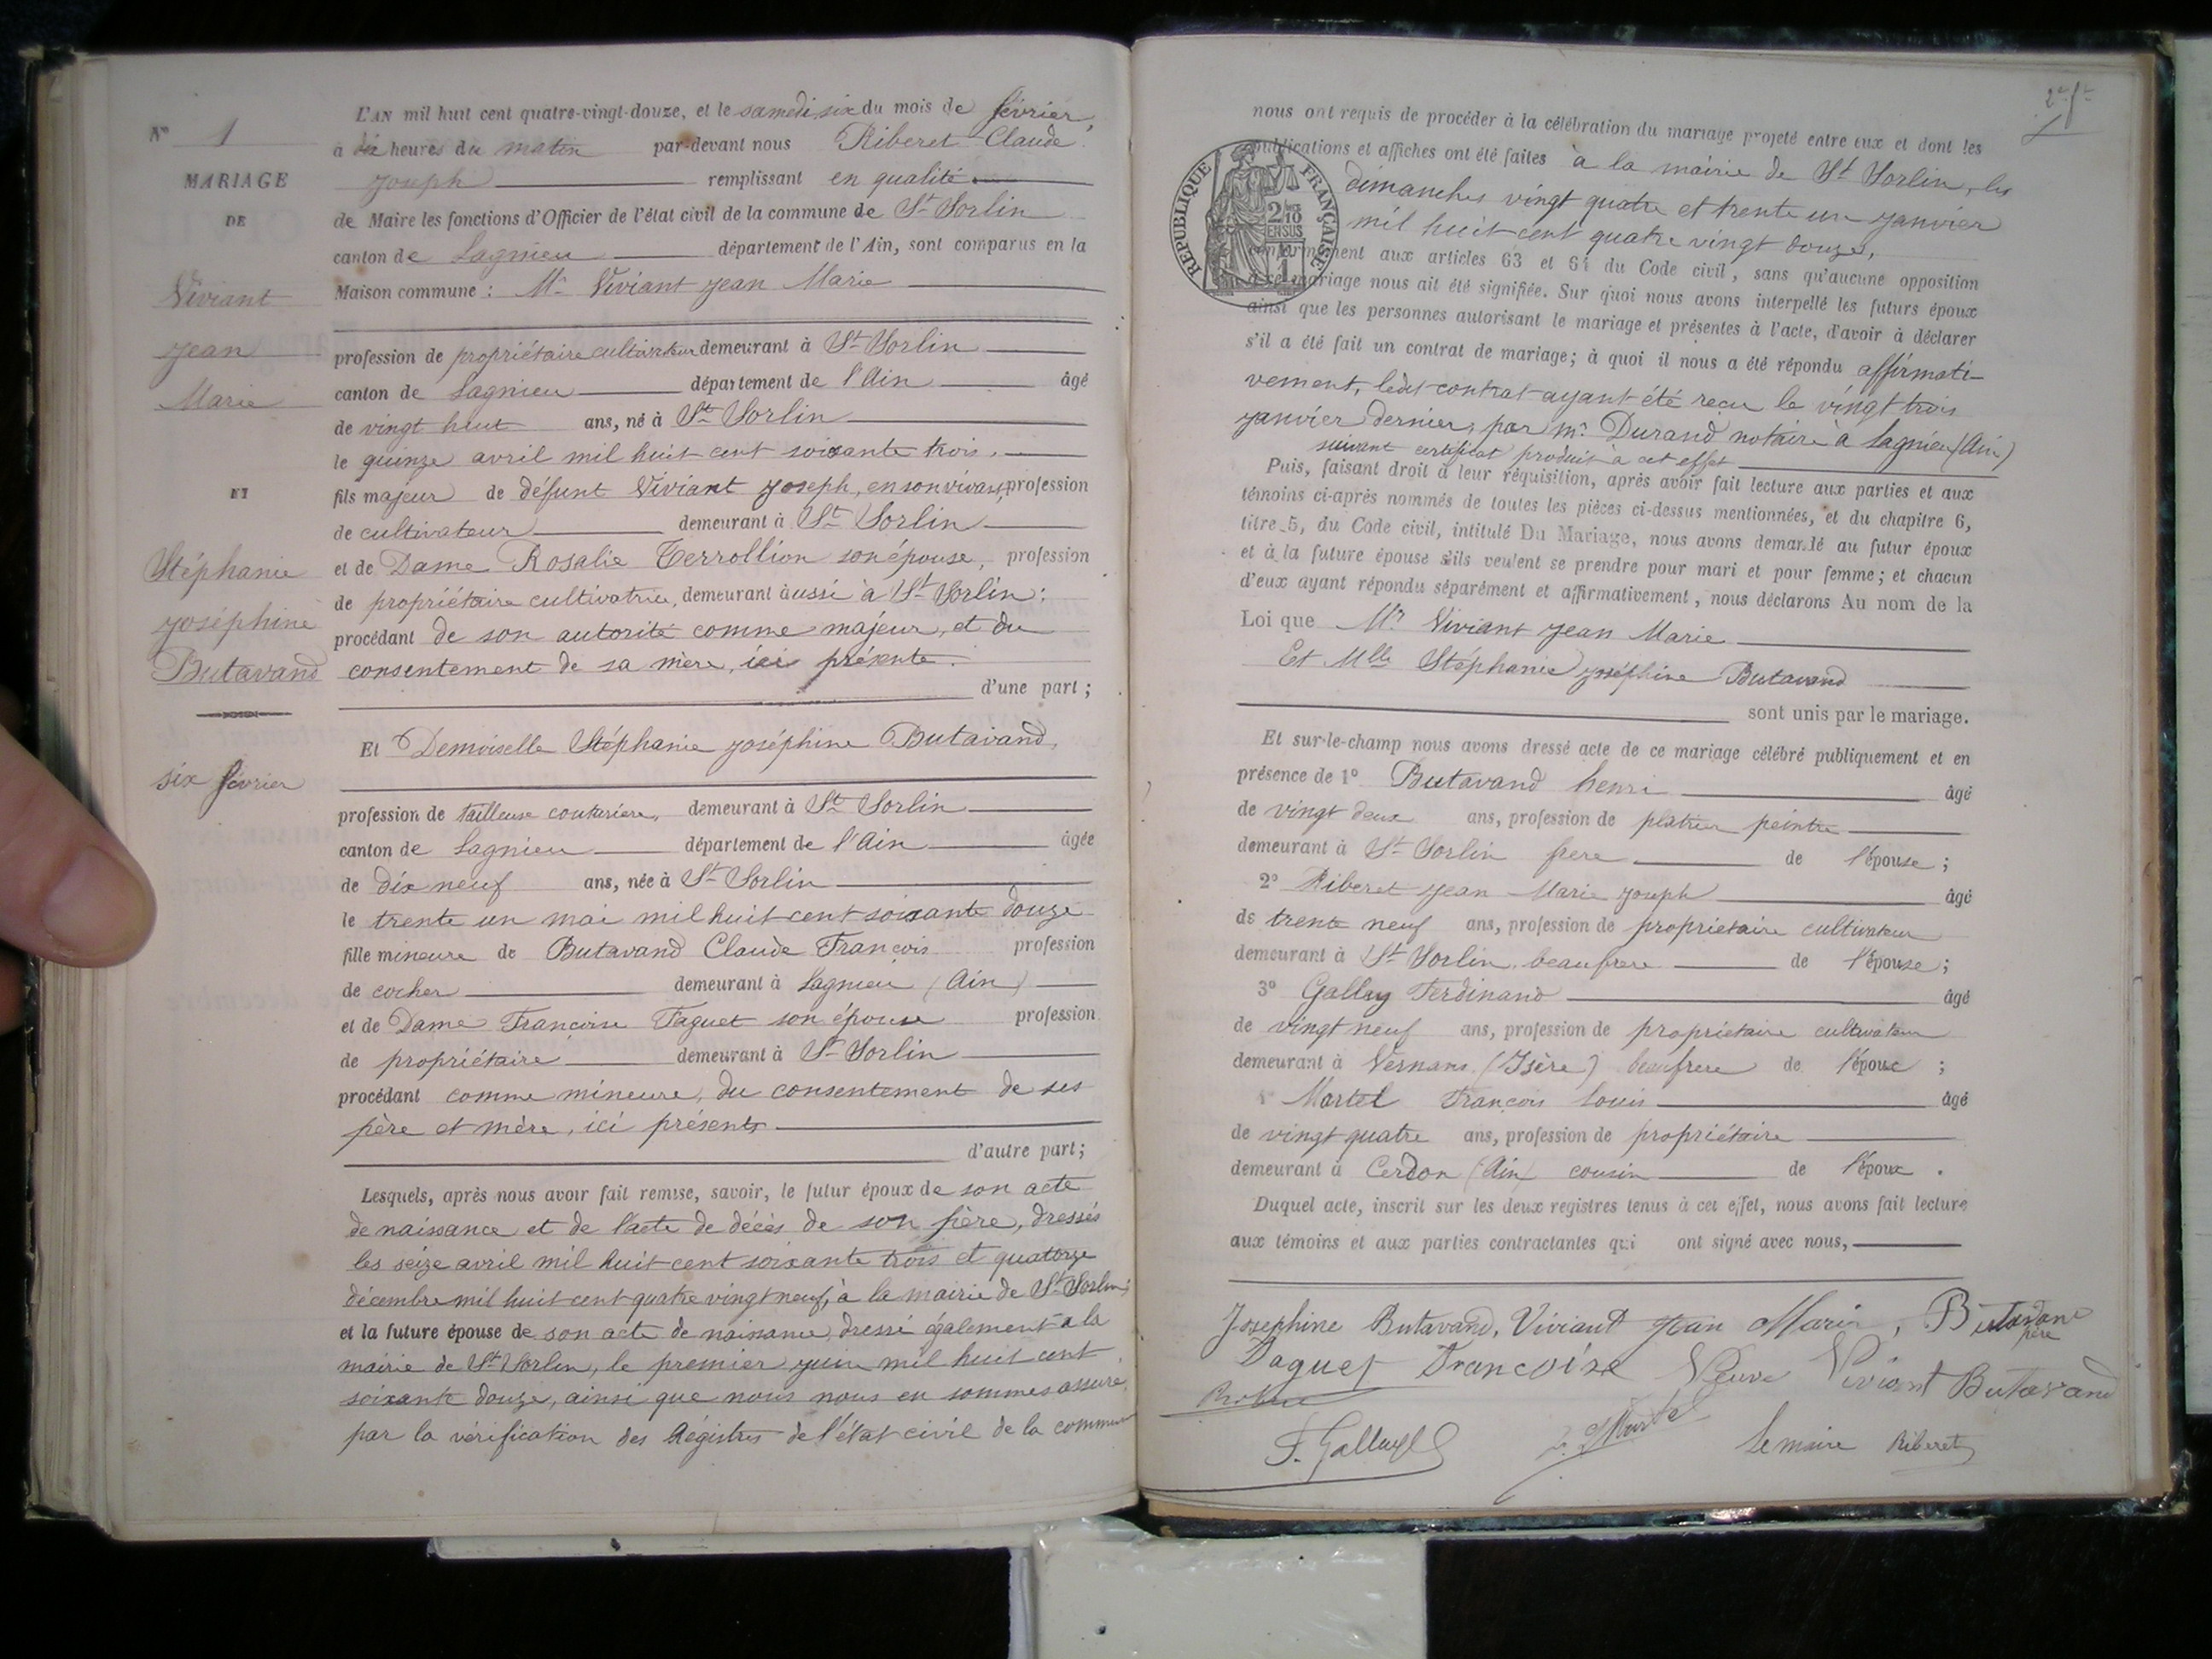 N° 1
MARIAGE
DE
Viviant
Jean
Marie
ET
Stéphanie
Joséphine
Butavand
six février
L'AN mil huit cent quatre-vingt-douze, et le samedi six du mois de février,
à dix heures du matin par-devant nous Riberet Claude
Joseph remplissant en qualité
de Maire les fonctions d'Officier de l'état civil de la commune de St Sorlin
canton de Lagnieu département de l'Ain, sont comparus en la
Maison commune : Mr Viviant Jean Marie
profession de propriétaire cultivateur demeurant à St Sorlin
canton de Lagnieu département de l'Ain âgé
de vingt huit ans, né à St Sorlin
le quinze avril mil huit cent soixante trois,
fils majeur de défunt Viviant Joseph, en son vivant, profession
de cultivateur demeurant à St Sorlin
et de Dame Rosalie Terrollion son épouse, profession
de propriétaire cultivatrice, demeurant aussi à St Sorlin;
procédant de son autorité comme majeur, et du
consentement de sa mère, ici présente.
d'une part ;
Et Demoiselle Stéphanie Joséphine Butavand,
profession de tailleuse couturière, demeurant à St Sorlin
canton de Lagnieu département de l'Ain âgée
de dix neuf ans, née à St Sorlin
le trente un mai mil huit cent soixante douze
fille mineure de Butavand Claude François profession
de cocher demeurant à Lagnieu (Ain)
et de Dame Françoise Faguet son épouse profession
de propriétaire demeurant à St Sorlin
procédant comme mineure, du consentement de ses
père et mère, ici présents
d'autre part ;
Lesquels, après nous avoir fait remise, savoir, le futur époux de son acte
de naissance et de l'acte de décès de son père, dressés
les seize avril mil huit cent soixante trois et quatorze
décembre mil huit cent quatre vingt neuf, à la mairie de St Sorlin;
et la future épouse de son acte de naissance, dressé également à la
mairie de St Sorlin, le premier juin mil huit cent
soixante douze, ainsi que nous nous en sommes assuré,
par la vérification des Régistres de l'état civil de la commune
2e ft
nous ont requis de procéder à la célébration du mariage projeté entre eux et dont les
publications et affiches ont été faites à la mairie de St Sorlin, les
dimanches vingt quatre et trente un janvier
mil huit cent quatre vingt douze,
RÉPUBLIQUE FRANÇAISE
conformément aux articles 63 et 64 du Code civil, sans qu'aucune opposition
à ce mariage nous ait été signifiée. Sur quoi nous avons interpellé les futurs époux
ainsi que les personnes autorisant le mariage et présentes à l'acte, d'avoir à déclarer
s'il a été fait un contrat de mariage; à quoi il nous a été répondu affirmati-
vement, ledit contrat ayant été reçu le vingt trois
janvier dernier, par Mr Durand notaire à Lagnieu (Ain)
suivant certificat produit à cet effet
Puis, faisant droit à leur réquisition, après avoir fait lecture aux parties et aux
témoins ci-après nommés de toutes les pièces ci-dessus mentionnées, et du chapitre 6,
titre 5, du Code civil, intitulé Du Mariage, nous avons demandé au futur époux
et à la future épouse s'ils veulent se prendre pour mari et pour femme; et chacun
d'eux ayant répondu séparément et affirmativement, nous déclarons Au nom de la
Loi que Mr Viviant Jean Marie
Et Mlle Stéphanie Joséphine Butavand
sont unis par le mariage.
Et sur-le-champ nous avons dressé acte de ce mariage célébré publiquement et en
présence de 1° Butavand henri âgé
de vingt deux ans, profession de platrier peintre
demeurant à St Sorlin frere de l'épouse ;
2° Riberet Jean Marie Joseph âgé
de trente neuf ans, profession de propriétaire cultivateur
demeurant à St Sorlin, beaufrere de l'épouse ;
3° Gallay Ferdinand âgé
de vingt neuf ans, profession de propriétaire cultivateur
demeurant à Vernans (Isère) beaufrere de l'époux ;
Martel François Louis âgé
de vingt quatre ans, profession de propriétaire
demeurant à Cerdon (Ain) cousin de l'époux .
Duquel acte, inscrit sur les deux registres tenus à cet effet, nous avons fait lecture
aux témoins et aux parties contractantes qui ont signé avec nous,
Josephine Butavand, Viviant Jean Marie, Butavand
père
Daguet Francoise Veuve Viviant Butavand
F. Gallay
Le maire Riberet